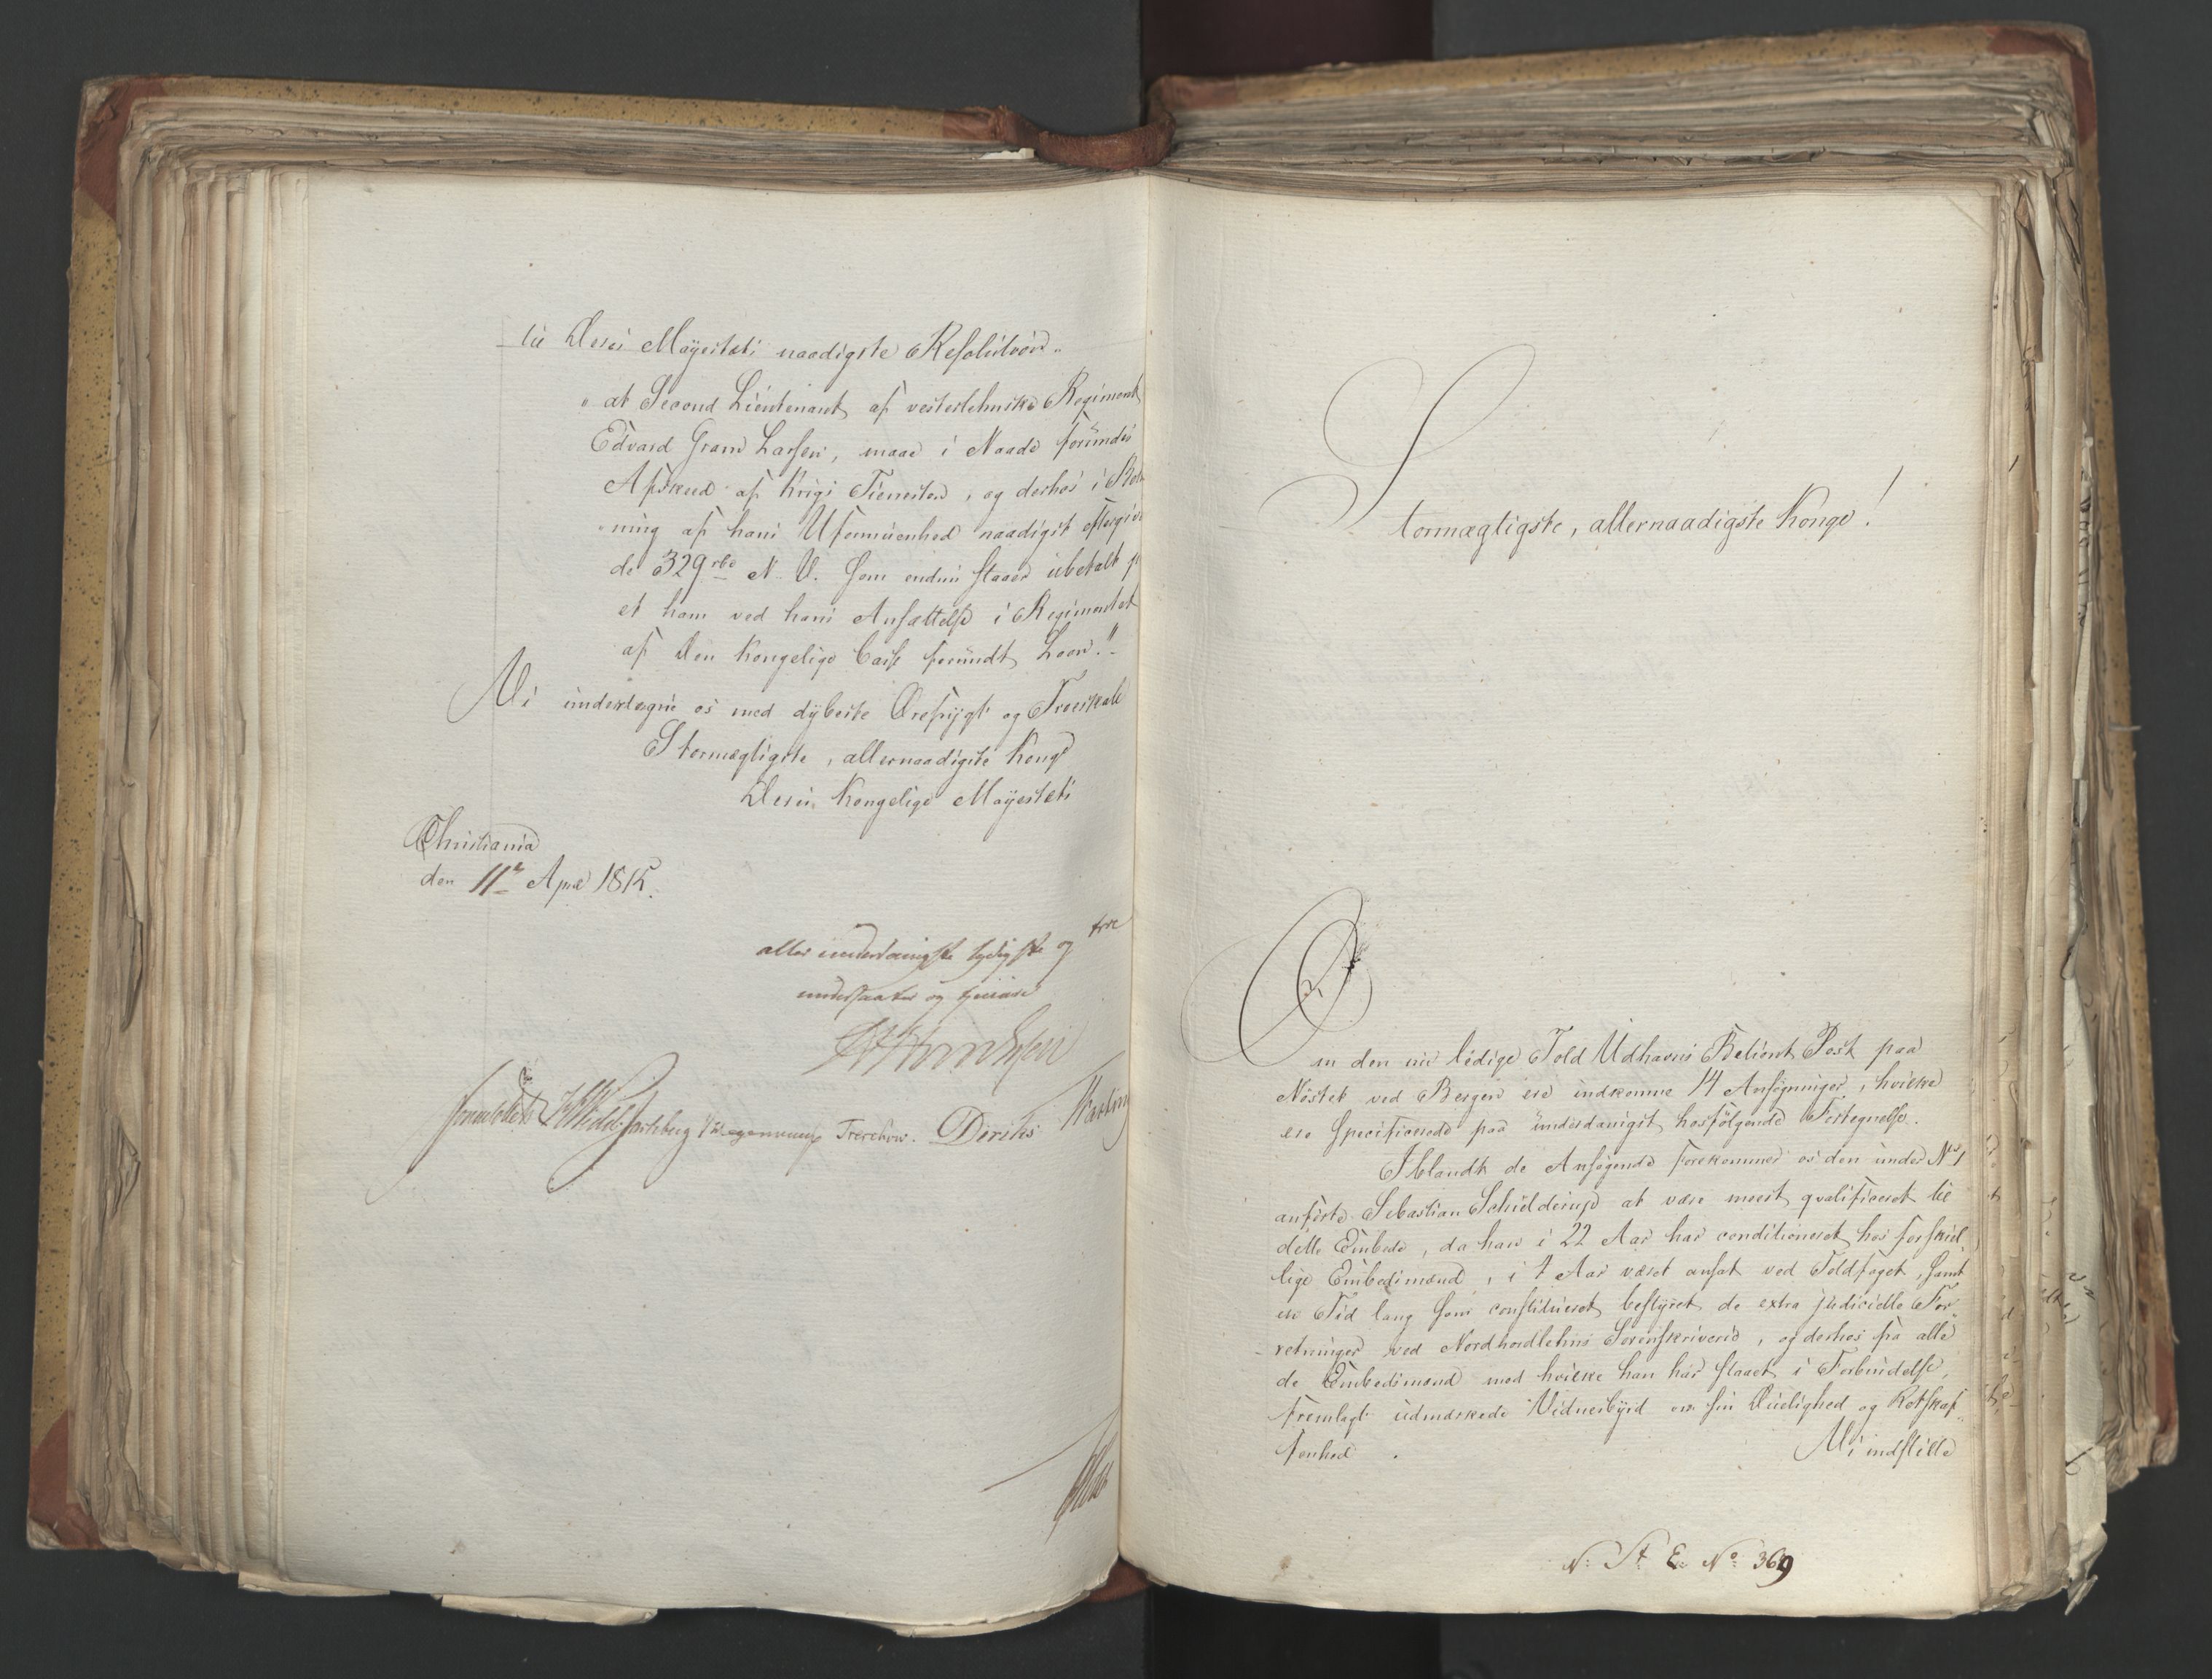 til Deres Mayestæts naadigste Resolution
"at Second Lieutenant af vesterlehnske Regiment
Edvard Gram Larsen, maae i Naade forundes
Afskeed af Krigs Tienesten, og derhos i
ning af hans Uformuenhed naadigst eftergives
de 329 rbd N. V. som endnu staaer ubetalt
et ham ved hans Ansættelse i Regimentet
af Den Kongelige Casse forundt Laan."
Vi undertegne os med dybeste Ærefrygt og Troeskab
Stormægtigste, allernaadigste Konge
Deres Kongelige Mayestæts
Christiania
den 11te April 1815.
allerunderdanigste lydigste og troe
undersaatter og tjenere
Sommerfeldt Wedel Jarlsberg Treschow. Diriks Hasting
Stormægtigste, allernaadigste Konge!
Om den nu ledige Told Udhavns Betient Post paa
Nöstet ved Bergen ere indkomne 14 Ansögninger, hvilke
ere specificerede paa underdanigst hosfölgende Fortegnelse.
Iblandt de Ansögende forekommer os den under No 1
anförte Sebastian Schilderup at være meest qvalificeret til
dette Embede, da han i 22 Aar har conditioneret hos forskiel
lige Embedsmænd, i 7 Aar været ansat ved Toldfaget, samt
en Tid lang som constitueret bestyret de extra judicielle For
retninger ved Nordhordlehns Sorenskriverie, og derhos fra alle
de Embedsmænd med hvilke han har staaet i Forbindelse,
fremlagt udmærkede Vidnesbyrd om sin Duelighed og Retskaf
fenhed.
Vi indstille
N: St. E: No 369